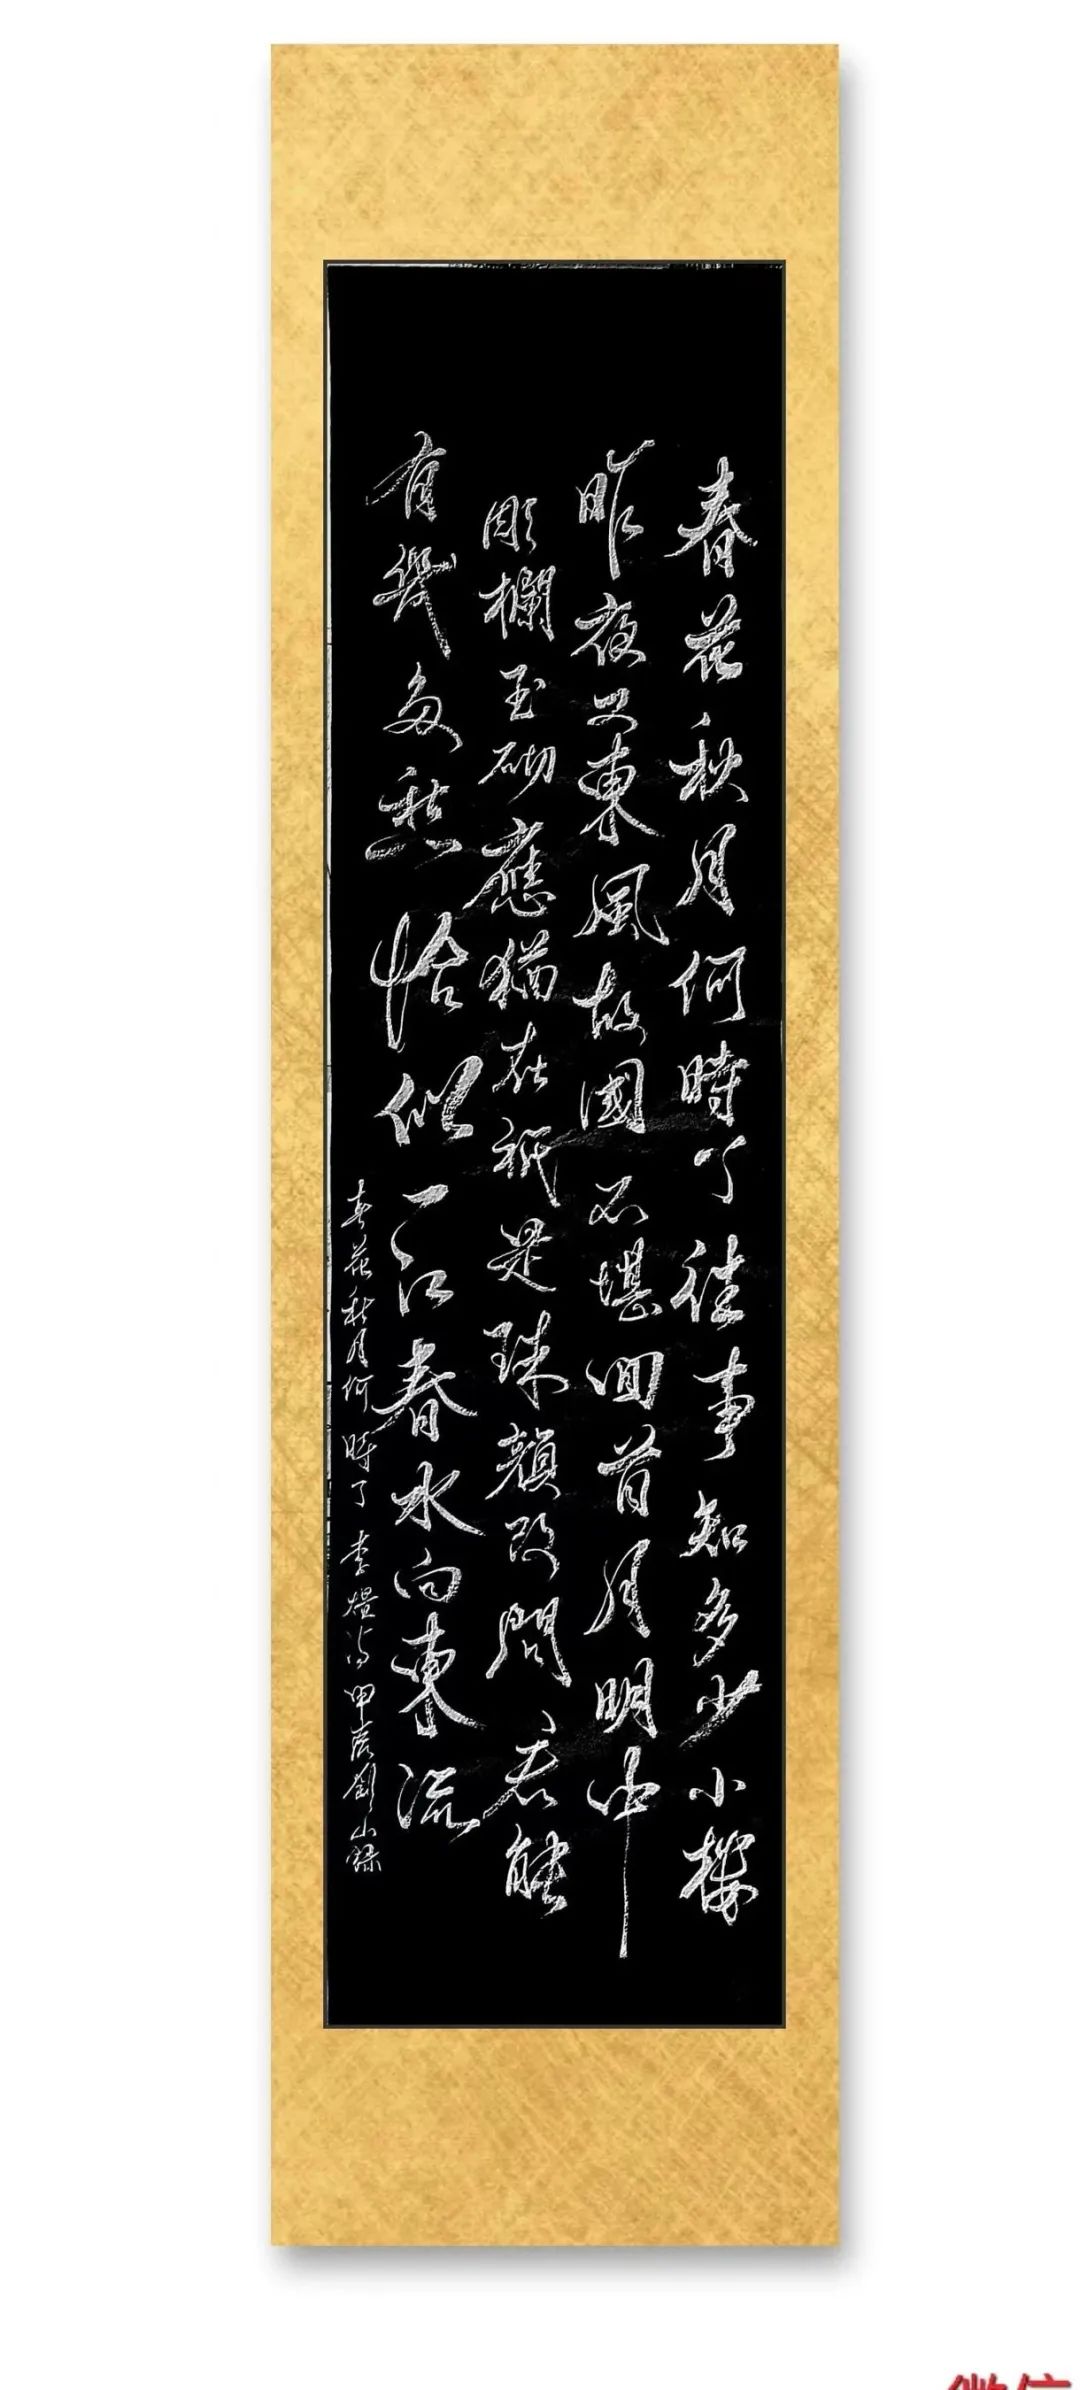 春花秋月何時了往事知多少小樓
昨夜又東風故國不堪回首月明中
彫欄玉砌應猶在祇是珠顏改問君能
有幾多愁恰似一江春水向東流
春花秋月何時了李煜詩甲辰劉山錄
微信